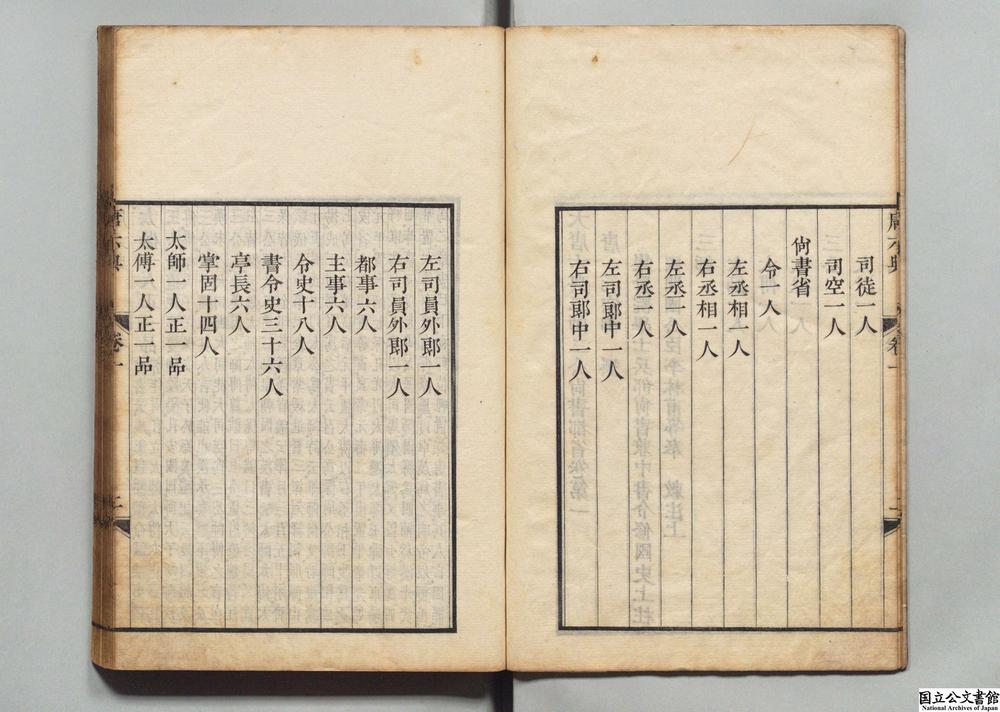 唐六典 卷一
司徒一人
司空一人
尙書省
令一人
左丞相一人
右丞相一人
左丞一人
右丞一人
左司郞中一人
右司郞中一人
左司員外郞一人
右司員外郞一人
都事六人
主事六人
令史十八人
書令史三十六人
亭長六人
掌固十四人
太師一人正一品
太傅一人正一品
唐六典 卷一 二
国立公文書館
National Archives of Japan